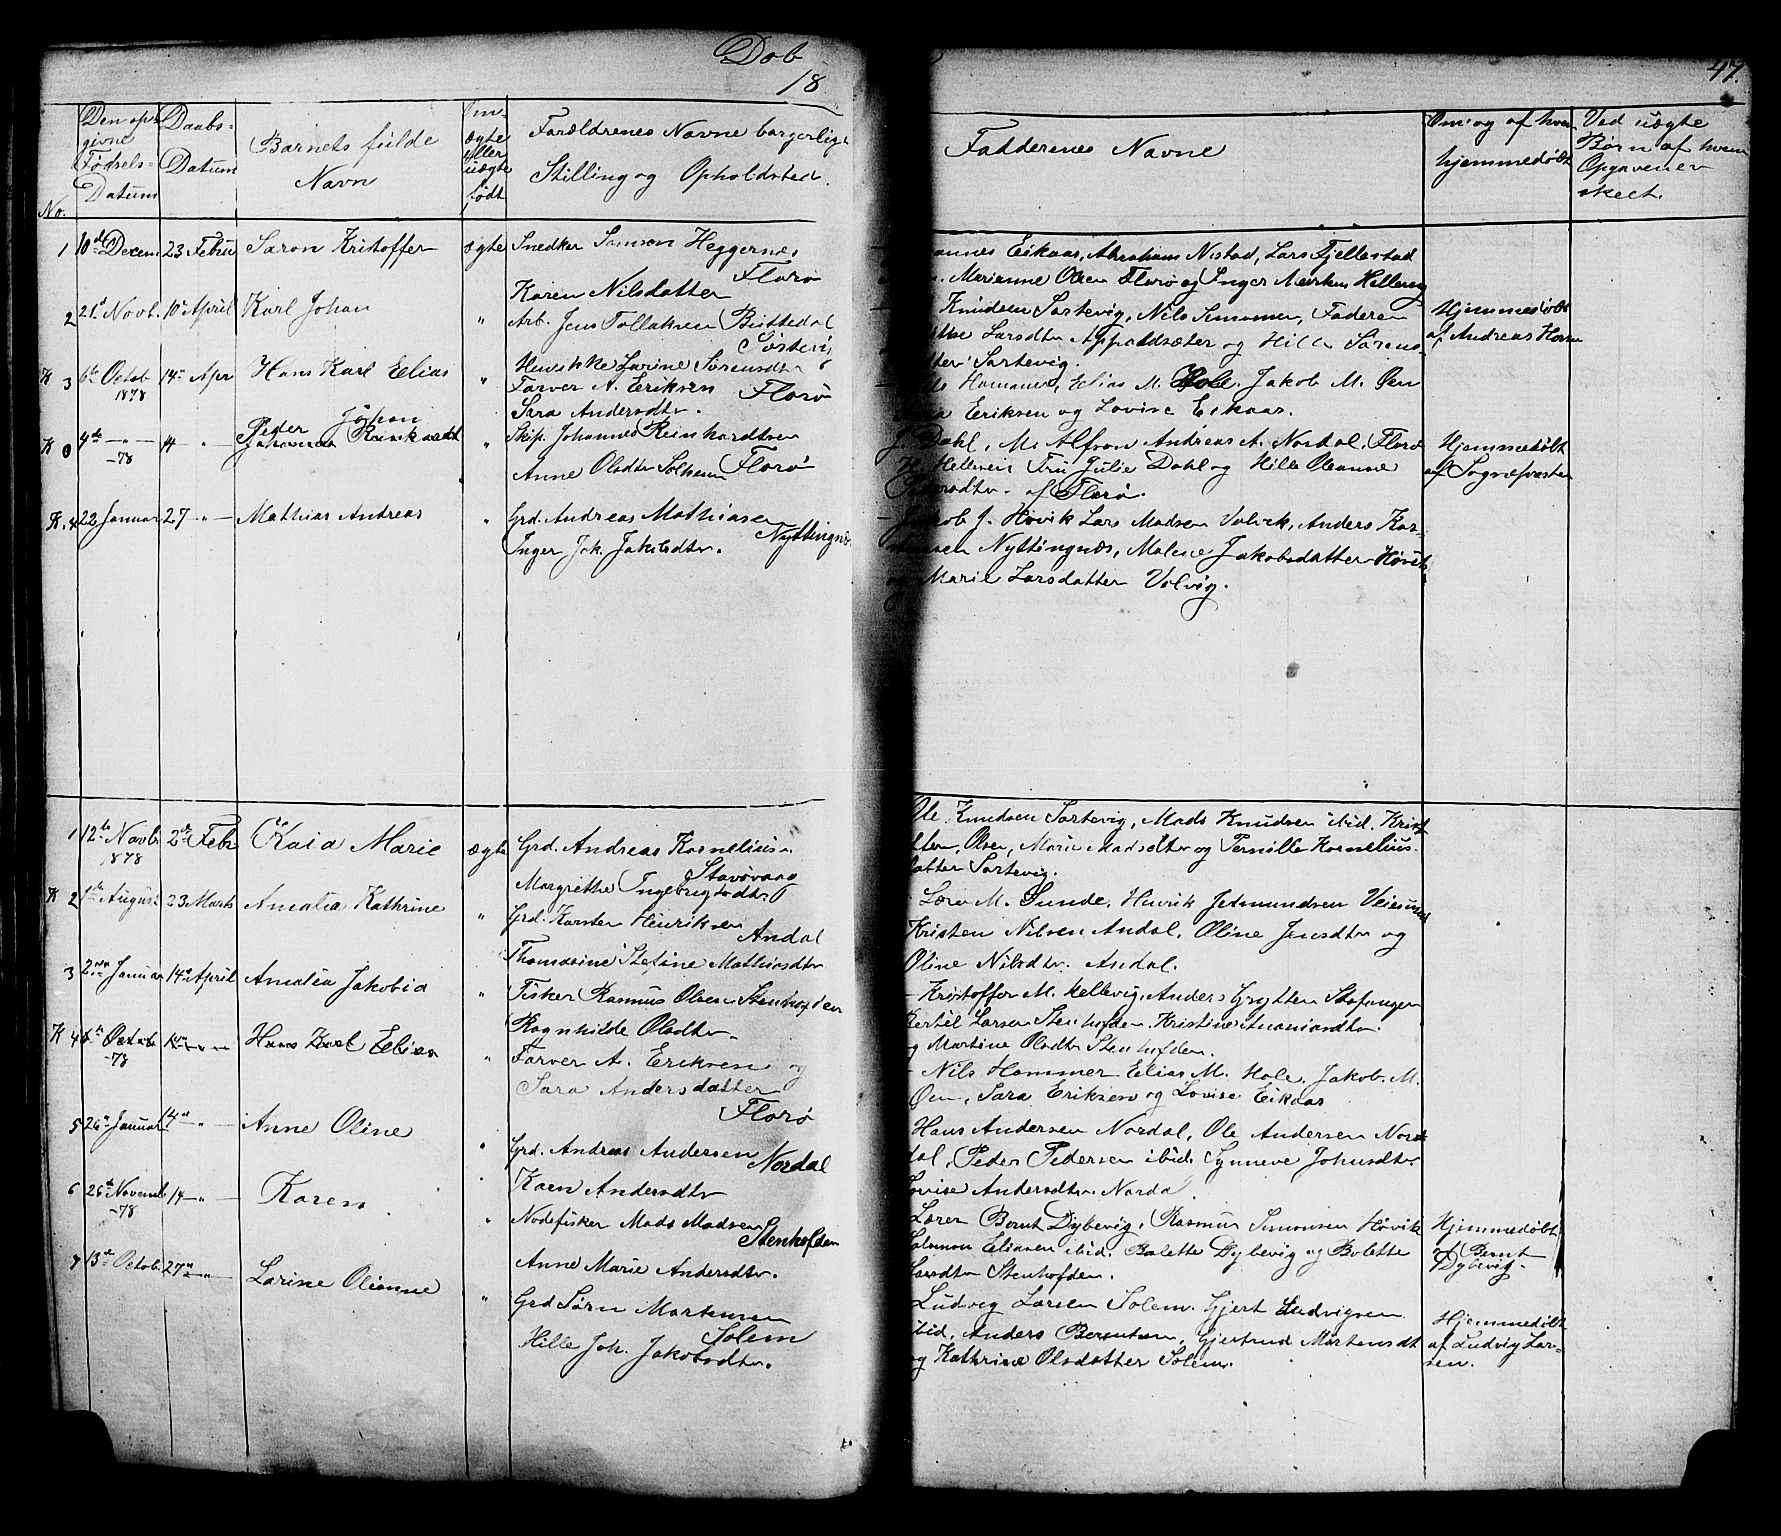 Døb
18
47.
No.
Den op-
givne
Fødsels-
Datum
Daabs-
Datum
Barnets fulde
Navn
Om
ægte
eller
uægte
født
Forældrenes Navne borgerlige
Stilling og Opholdsted.
Faddernes Navne
Om og af hvem
hjemmedøbt
Ved uægte
Børn af hvem
Opgaven er
skeet.
1 10de Decem 23 Febru Saron Kristoffer ægte Snedker Samson Heggernes
Florø
Karen Nilsdatter
annes Eikaas, Abraham Nistad, Lars Fjellestad
Marianne Olsen Florø og Inger Markus Hellevig
2 21d Novb. 10 April Karl Johan " Arb. Jens Tollaksen
Sørtevig
Henrikke Larine Sørensdtr
Knudsen Sørtevig, Nils Simonsen, Faderen
Larsdtr Appaldsæter og Hille Sørens-
dtter Sørtevig.
Hjemmedøbt
af Andreas
K 3 6te Octob 14 Apr Hans Karl Elias " Farver A. Eriksen Florø
1878
Sara Andersdtr.
Hammer, Elias M. Hole. Jakob M. Øen
Eriksen og Lovise Eikaas.
K 0 4de -"- 14 " Peder Johan
Johannes Reinhardt " Skip. Johannes Reinhardtsen
-78
Anne Olsdtr Solheim Florø
J. Dahl, M. Alfson Andreas A. Nordal. Florø
H. Hellevig Fru Julie Dahl og Hille Oleanne
af Florø.
Hjemmedøbt
af Sognepræsten
K. 4 22 Januar 27 -"- Mathias Andreas " Grd. Andreas Mathiasen
Nyttingnæs
Inger Joh. Jakobsdtr.
Jakob J. Høvik Lars Madsen Valvik, Anders Kar-
stensen Nyttingnæs, Malene Jakobsdatter Høvik
og Marie Larsdatter Volvig.
1 12te Novb. 2de Febr Kaia Marie ægte Grd. Andreas Kornelius.
1878
Stavøvaag
Margrethe Ingebrigtsdtr.
Ole Knudsen Sørtevig, Mads Knudsen ibid. Krist
Olsen, Marie Madsdtr og Pernille Kornelius-
datter Sørtevig.
K 2 1ste August 23 Marts Amalia Kathrine " Grd. Karsten Henriksen
Andal
Thomasine Stefine Mathiasdtr
Lærer M. Gunde. Henrik Jetmundsen Veiesund
Kristen Nilsen Andal. Oline Jensdtr og
Oline Nilsdtr. Andal.
3 2den Januar 14de April Amalia Jakobia " Fisker Rasmus Olsen Stenhofden
Ragnhilde Olsdtr
Kristoffer M. Hellevig. Anders Stafangen
Bertel Larsen Stenhofden. Kristine Ananiasdtr.
og Martine Olsdtr Stenhofden.
K 4 6te Octob 14de -"- Hans Karl Elias " Farver A. Eriksen og
-78
Sara Andersdatter
Florø
Nils Hammer Elias M. Hole. Jakob. M.
Øen, Sara Eriksen og Lovise Eikaas
5 26de Januar 14de -"- Anne Oline " Grd. Andreas Andersen
Nordal
Karen Andersdtr
Hans Andersen Nordal, Ole Andersen Nor-
dal, Peder Pedersen ibid. Synneve Johnsdtr.
Lovise Andersdtr. Nordal.
6 26de Novemb. 14 -"- Karen " Nodefisker Mads Madsen
-78
Stenhofden
Anne Marie Andersdtr.
Lærer Bernt Dybevig, Rasmus Simonsen Høvik
Salomon Eliasen ibid. Bolette Dybevig og Bolette
Larsdtr Stenhofden.
Hjemmedøbt
af Bernt
Dybevig.
7 13de Octob. 27de -"- Larine Olianne " Grd Sørn Martensen
Solem
Hille Joh. Jakobsdtr.
Ludvig Larsen Solem. Gjert Ludvigsen
ibid. Anders Berentsen. Gjertrud Mortensdt
og Kathrine Olsdatter Solem.
Hjemmedøbt
af Ludvig Lar-
sen.